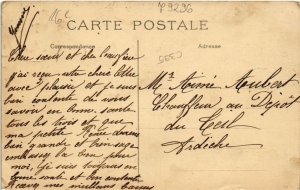 P9296
CARTE POSTALE
Correspondance
Adresse
Cher sœur et cher beau frère
J'ai reçu votre chère lettre
avec plaisir et je suis
bien contente de vous
savoir en bonne santé
tous les trois et que
ma petite devient
bien grande et bien sage
embrassez la bien pour
moi, je suis toujours
et bien contente
Recevez mes meilleurs baisers
Mr Aimé Aubert
Chauffeur au Dépôt
du Teil
Ardèche